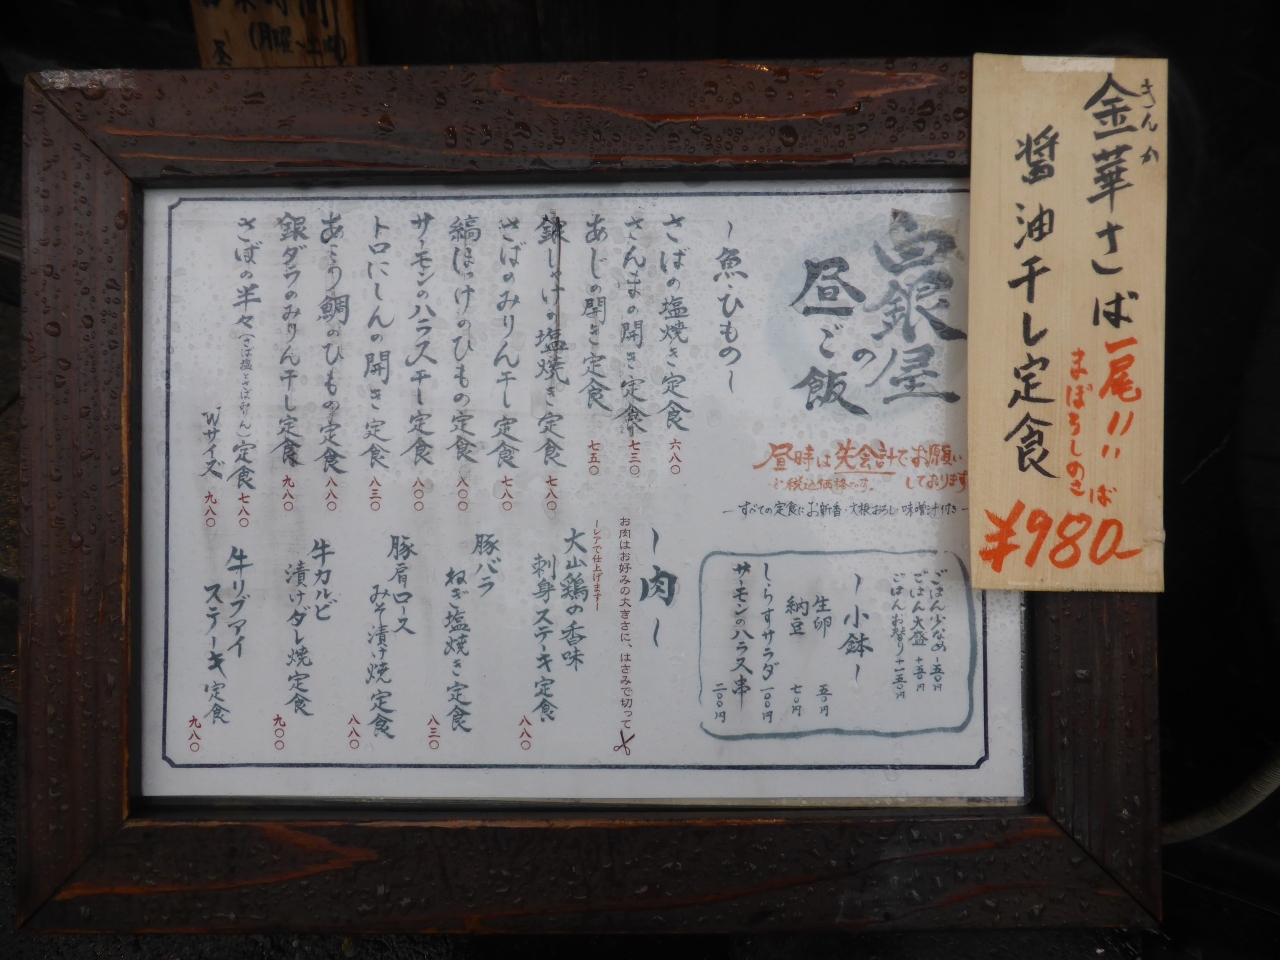 金華さば一尾
きんか
まぼろしのさば
醤油干し定食
¥980
白銀屋
の
昼ご飯
昼時は先会計でお願い
しております
※税込価格です。
―すべての定食にお新香・大根おろし・味噌汁付き―
～魚・ひもの～
さばの塩焼き定食 六八〇
さんまの開き定食 七三〇
あじの開き定食 七五〇
銀しゃけの塩焼き定食 七八〇
さばのみりん干し定食 七八〇
縞ほっけのひもの定食 八〇〇
サーモンのハラス干し定食 八〇〇
トロにしんの開き定食 八三〇
あこう鯛のひもの定食 八八〇
銀ダラのみりん干し定食 九八〇
さばの半々(さば塩とさばみりん)定食 七八〇
Wサイズ 九八〇
～肉～
お肉はお好みの大きさに、はさみで切って
大山鶏の香味
刺身ステーキ定食 八八〇
―レアで仕上げます―
豚バラ
ねぎ塩焼き定食 八三〇
豚肩ロース
みそ漬け焼定食 八八〇
牛カルビ
漬けダレ焼定食 九〇〇
牛リブアイ
ステーキ定食 九八〇
ごはん少なめ -五〇円
ごはん大盛 +五〇円
ごはんお替り +一五〇円
～小鉢～
生卵 五〇円
納豆 七〇円
しらすサラダ 一〇〇円
サーモンのハラス串 二〇〇円
(月曜～
昼